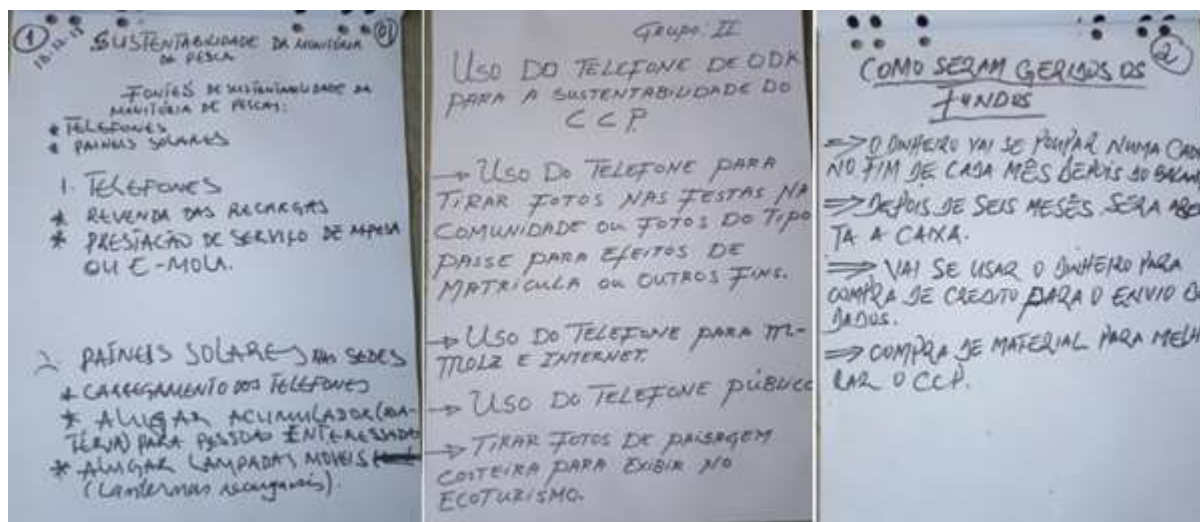 1
01
13.12.18
SUSTENTABILIDADE DA MONITORIA
DA PESCA
FONTES DE SUSTENTABILIDADE DA
MONITORIA DE PESCAS:
* TELEFONES
* PAINEIS SOLARES
1. TELEFONES
* REVENDA DAS RECARGAS
* PRESTAÇÃO DE SERVIÇO DE MPESA
OU E-MOLA.
PAÍNEIS SOLARES NAS SEDES
* CARREGAMENTO DOS TELEFONES
* ALUGAR ACUMULADOR (BA-
TERIA) PARA PESSOAS INTERESSADO
* ALUGAR LAMPADAS MOVEIS
(Lanternas recargaveis).
Grupo: II
USO DO TELEFONE DE ODK
PARA A SUSTENTABILIDADE DO
CCP
→ USO DO TELEFONE PARA
TIRAR FOTOS NAS FESTAS NA
COMUNIDADE OU FOTOS DO TIPO
PASSE PARA EFEITOS DE
MATRÍCULA OU OUTROS FINS.
→ USO DO TELEFONE PARA M-
MOLA E INTERNET.
→ USO DO TELEFONE PÚBLICO
→ TIRAR FOTOS DE PAISAGEM
COSTEIRA PARA EXIBIR NO
ECOTURISMO.
2
COMO SERAM GERIDOS OS
FUNDOS
⇒ O DINHEIRO VAI SE POUPAR NUMA CAIX
NO FIM DE CADA MÊS DEPOIS DO BALAN
⇒ DEPOIS DE SEIS MESÊS SERA ABE
TA A CAIXA.
⇒ VAI SE USAR O DINHEIRO PARA
COMPRA DE CREDITO PARA O ENVIO D
DADOS.
⇒ COMPRA DE MATERIAL PARA MELH
RAR O CCP.